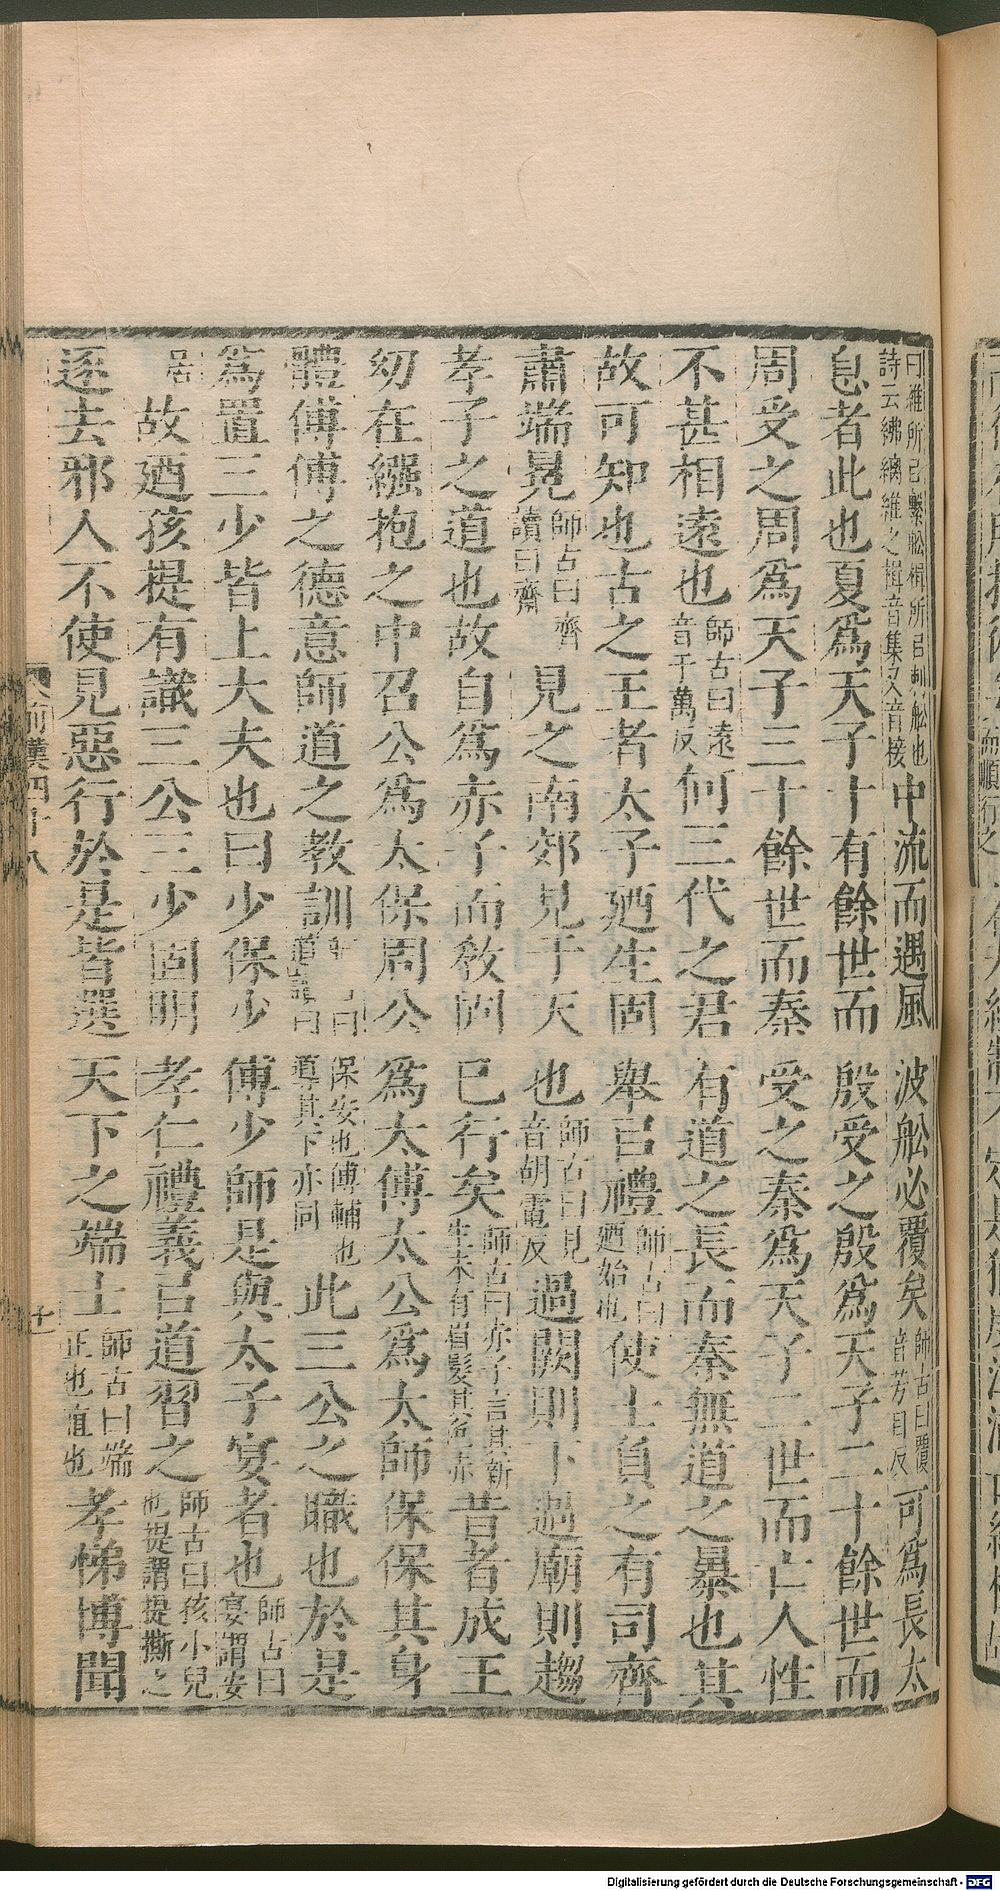 曰維所㠯繫船楫所㠯刺船也詩云紼纚維之楫音集又音接中流而遇風波船必覆矣師古曰覆音芳目反可爲長太
息者此也夏爲天子十有餘世而殷受之殷爲天子二十餘世而
周受之周爲天子三十餘世而秦受之秦爲天子二世而亡人性
不甚相遠也師古曰遠音于萬反何三代之君有道之長而秦無道之暴也其
故可知也古之王者太子迺生固舉㠯禮師古曰迺始也使士負之有司齊
肅端冕師古曰齊讀曰齋見之南郊見于天也師古曰見音胡電反過闕則下過廟則趨
孝子之道也故自爲赤子而敎固已行矣師古曰赤子言其新生未有眉髮其色赤昔者成王
幼在繈抱之中召公爲太保周公爲太傅太公爲太師保保其身
體傅傅之德意師道之教訓道讀曰導其下亦同保安也傅輔也此三公之職也於是
爲置三少皆上大夫也曰少保少傅少師是與太子宴者也師古曰宴謂安
居故迺孩提有識三公三少固明孝仁禮義㠯道習之師古曰孩小兒也提謂提撕之
逐去邪人不使見惡行於是皆選天下之端士師古曰端正也直也孝悌博聞
前漢四十八
十一
Digitalisierung gefördert durch die Deutsche Forschungsgemeinschaft - DFG